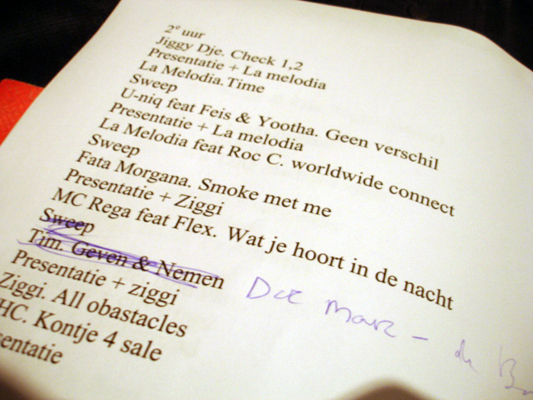 2e uur
Jiggy Dje. Check 1,2
Presentatie + La melodia
La Melodia. Time
Sweep
U-niq feat Feis & Yootha. Geen verschil
Presentatie + La melodia
La Melodia feat Roc C. worldwide connect
Sweep
Fata Morgana. Smoke met me
Presentatie + Ziggi
MC Rega feat Flex. Wat je hoort in de nacht
Sweep
Tim. Geven & Nemen
Presentatie + ziggi
Ziggi. All obastacles
HC. Kontje 4 sale
sentatie